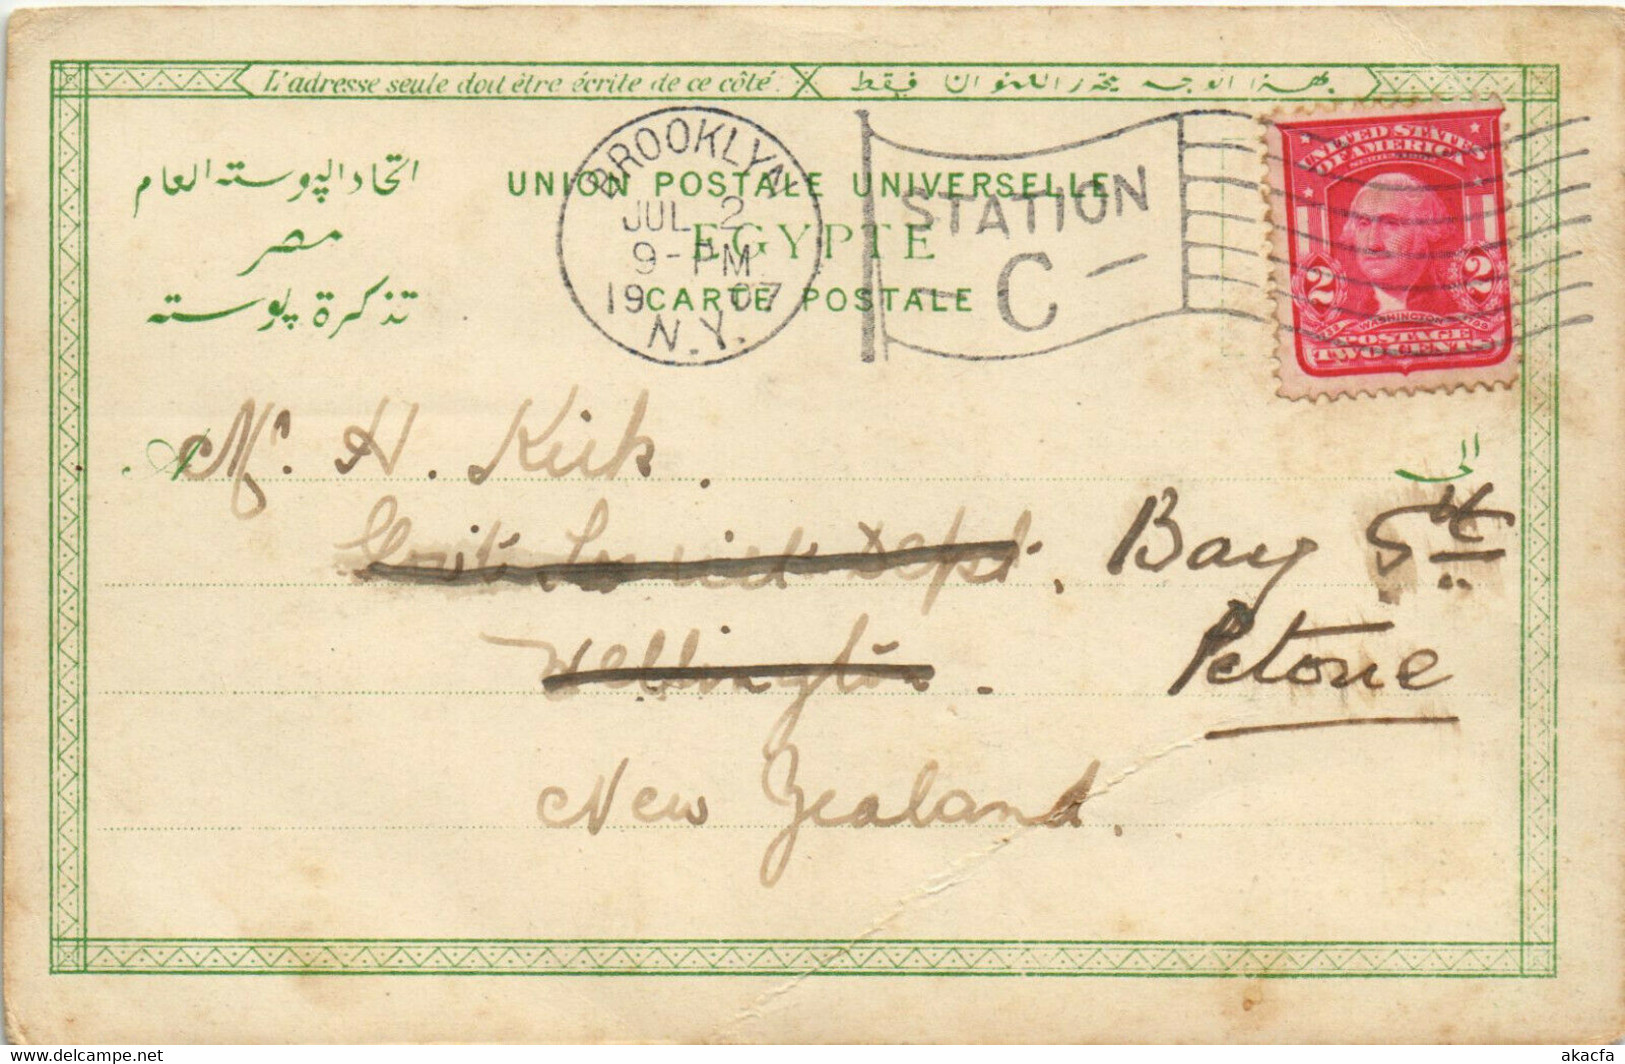 L'adresse seule doit être écrite de ce côté.
بهذا الوجه يحرر العنوان فقط
اتحاد البوسته العام
مصر
تذكرة بوسته
UNION POSTALE UNIVERSELLE
EGYPTE
CARTE POSTALE
BROOKLYN
JUL 2
9-PM
1907
N.Y.
STATION
- C -
UNITED STATES
OF AMERICA
2 2
WASHINGTON
POSTAGE
TWO CENTS
الى
Mr. H. Kirk.
Dept. Bay St
Wellington. Petone
New Zealand.
www.delcampe.net
akacfa